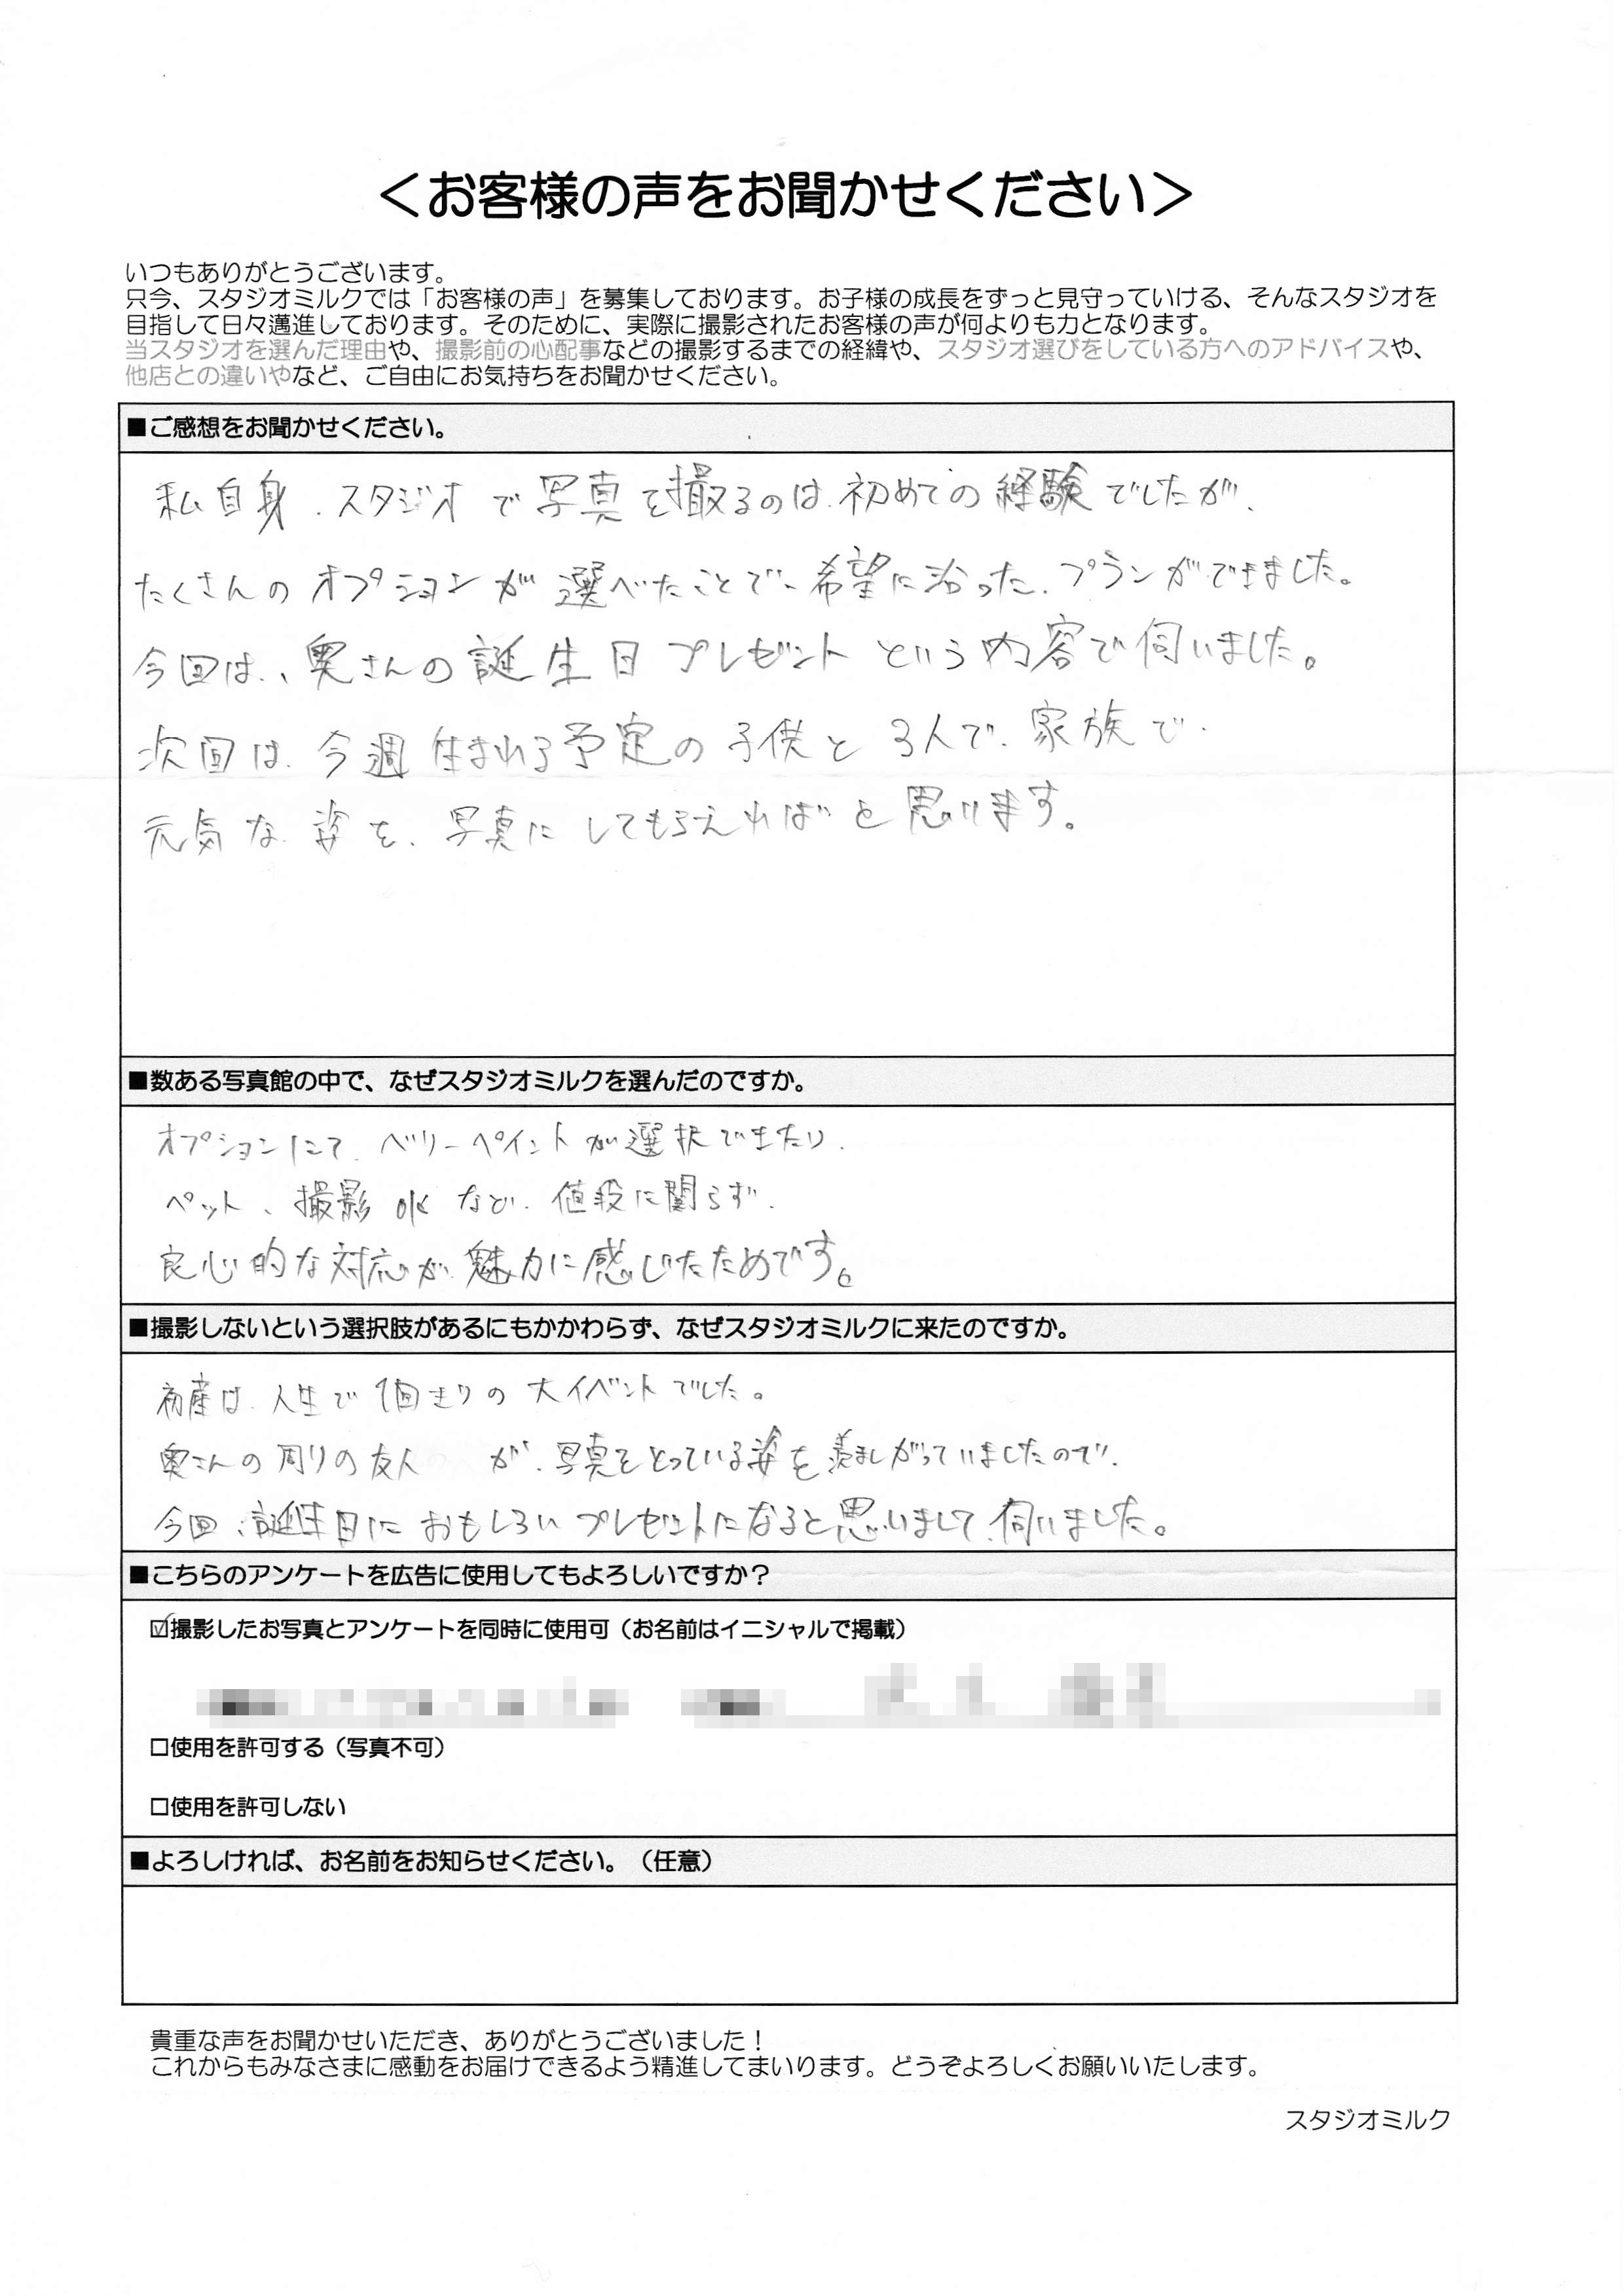 ＜お客様の声をお聞かせください＞
いつもありがとうございます。
只今、スタジオミルクでは「お客様の声」を募集しております。お子様の成長をずっと見守っていける、そんなスタジオを
目指して日々邁進しております。そのために、実際に撮影されたお客様の声が何よりも力となります。
当スタジオを選んだ理由や、撮影前の心配事などの撮影するまでの経緯や、スタジオ選びをしている方へのアドバイスや、
他店との違いやなど、ご自由にお気持ちをお聞かせください。
■ご感想をお聞かせください。
私自身、スタジオで写真を撮るのは、初めての経験でしたが、
たくさんのオプションが選べたことで、希望に沿った、プランができました。
今回は、奥さんの誕生日プレゼントという内容で伺いました。
次回は、今週生まれる予定の子供と3人で、家族で、
元気な姿を、写真にしてもらえればと思います。
■数ある写真館の中で、なぜスタジオミルクを選んだのですか。
オプションにて、ベリーペイントが選択できたり、
ペット、撮影OKなど、値段に関らず、
良心的な対応が、魅力に感じたためです。
■撮影しないという選択肢があるにもかかわらず、なぜスタジオミルクに来たのですか。
初産は、人生で1回きりの大イベントでした。
奥さんの周りの友人が、写真をとっている姿を羨ましがっていましたので、
今回、誕生日におもしろいプレゼントになると思いまして、伺いました。
■こちらのアンケートを広告に使用してもよろしいですか？
☑撮影したお写真とアンケートを同時に使用可（お名前はイニシャルで掲載）
□使用を許可する（写真不可）
□使用を許可しない
■よろしければ、お名前をお知らせください。（任意）
貴重な声をお聞かせいただき、ありがとうございました！
これからもみなさまに感動をお届けできるよう精進してまいります。どうぞよろしくお願いいたします。
スタジオミルク